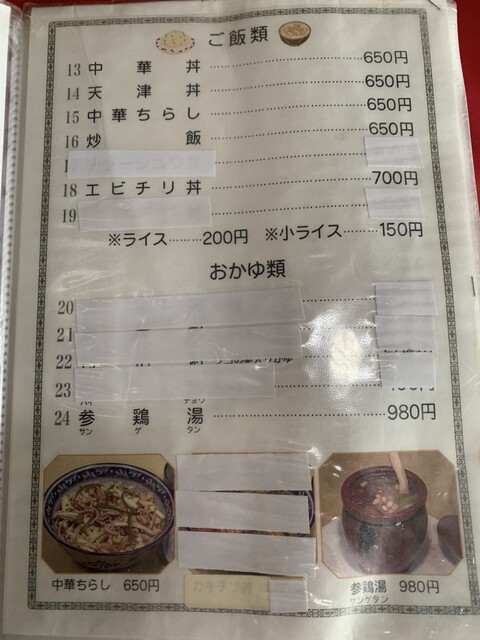 ご飯類
13 中華丼 650円
14 天津丼 650円
15 中華ちらし 650円
16 炒飯 650円
18 エビチリ丼 700円
19
※ライス 200円 ※小ライス 150円
おかゆ類
20
21
22
23
24 参鶏湯 980円
サン ゲ タン
中華ちらし 650円
参鶏湯 980円
サンゲタン